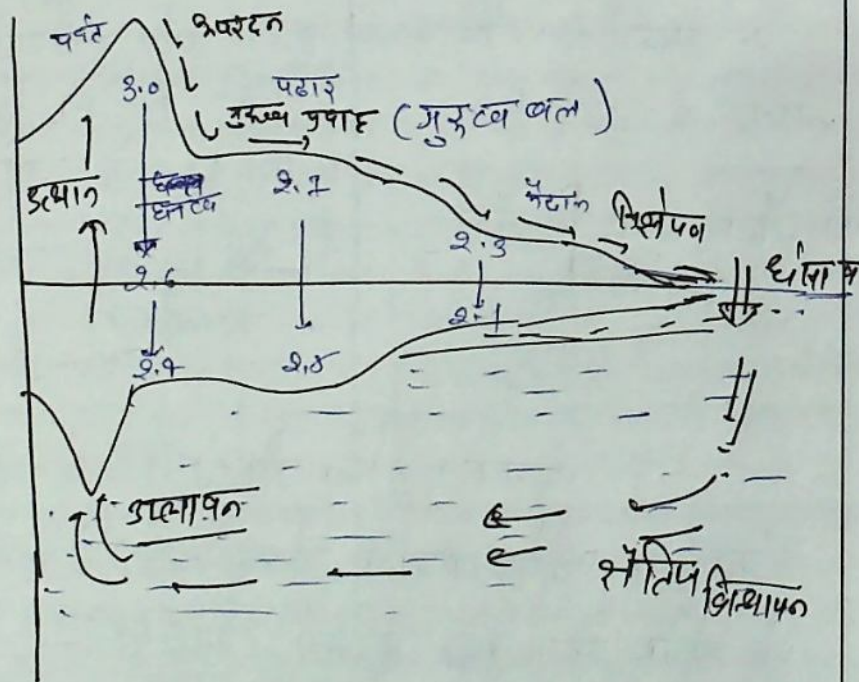 पर्वत
अपरदन
3.0
पठार
गुरुत्व प्रवाह (गुरुत्व बल)
उत्थान
घनत्व
2.7
मैदान
निक्षेपण
2.3
धंसाव
2.6
2.1
2.4
2.5
उत्प्लावन
क्षैतिज
विस्थापन